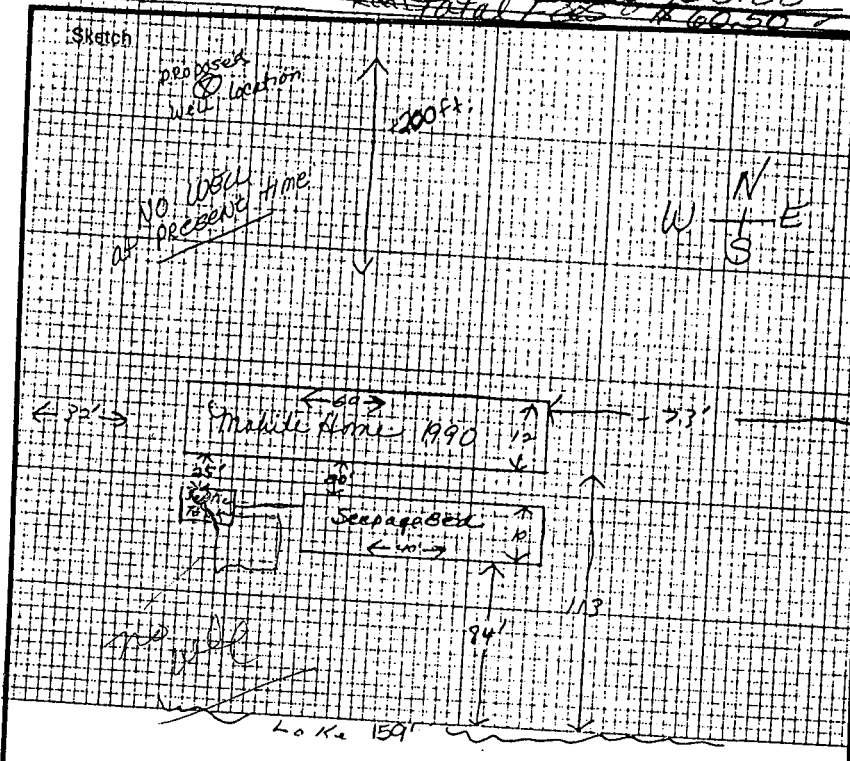 Total Fees $ 60.50
Sketch
proposed
well location
200ft.
NO WELL
at PRESENT time
N
W E
S
32'
60
Mobile Home 1990
12
73'
25'
Septic
Seepage Bed
10
40'
113
84'
no well
Lake 159'